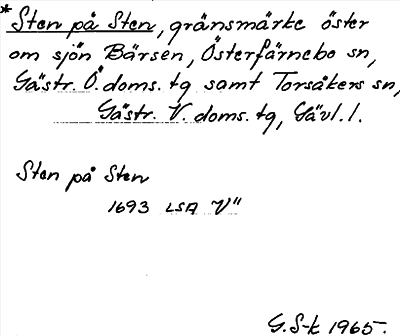 *Sten på Sten, gränsmärke öster
om sjön Bärsen, Österfärnebo sn,
Gästr. Ö. doms. tg samt Torsåkers sn,
Gästr. V. doms. tg, Gävl. l.
Sten på Sten
1693 LSA V"
G. S-k 1965.